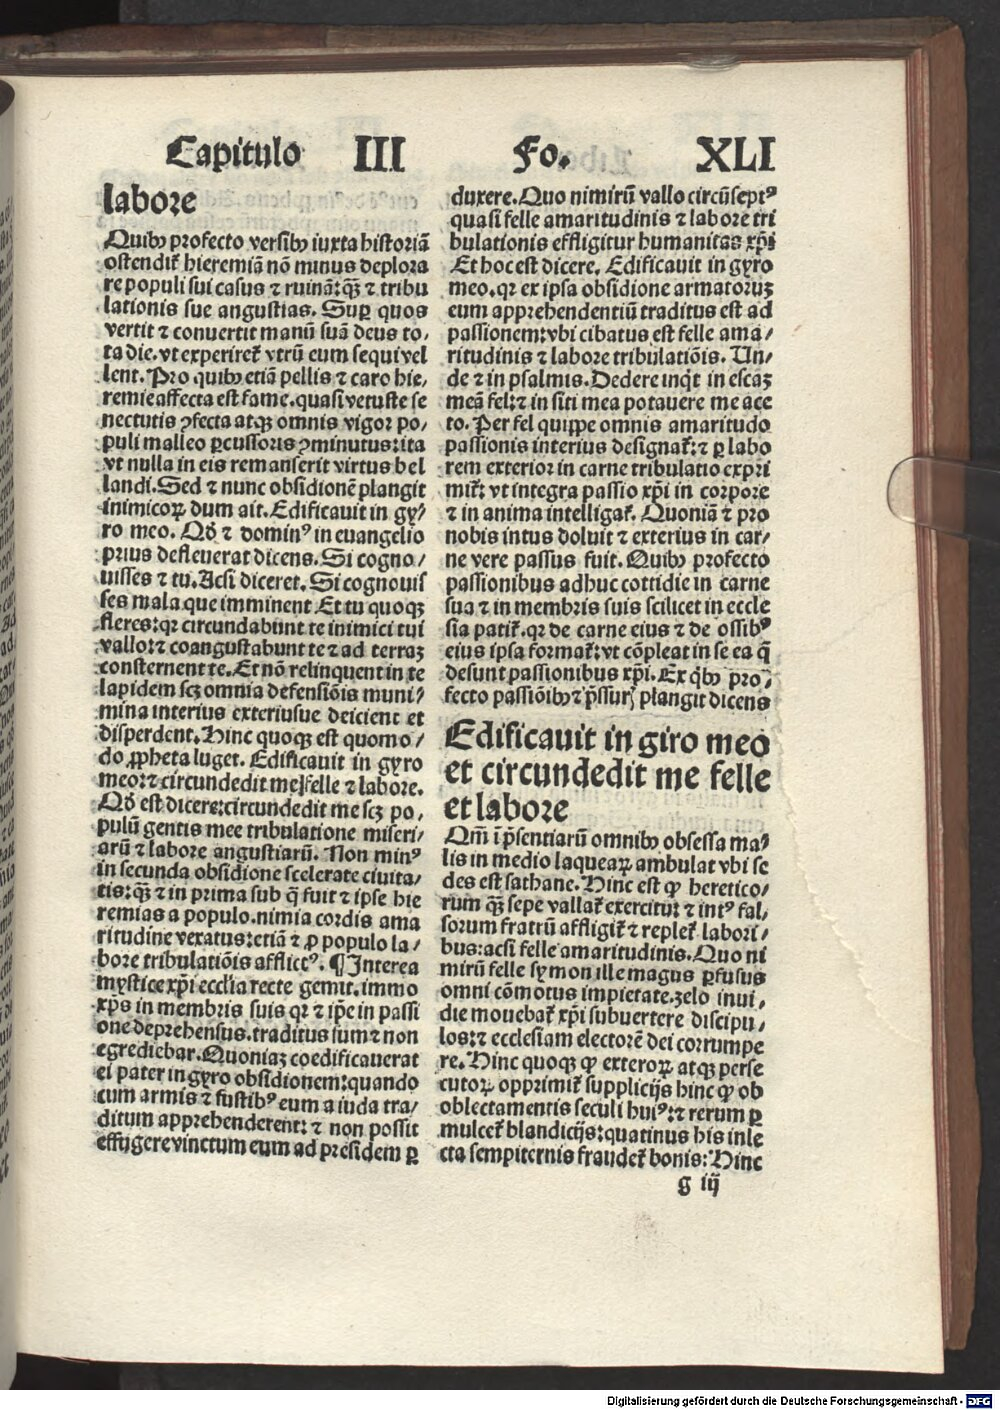 Capitulo III Fo. XLI
labore
Quibꝰ profecto versibꝰ iuxta historiā
ostendit᷑ hieremiā nō minus deplora
re populi sui casus ⁊ ruinā: qꝫ̄ ⁊ tribu
lationis sue angustias. Suꝑ quos
vertit ⁊ conuertit manū suā deus to/
ta die. vt experiret᷑ vtrū eum sequi vel
lent. Pro quibꝰ etiā pellis ⁊ caro hie/
remie affecta est fame. quasi vetuste se
nectutis ꝯfecta atqꝫ omnis vigor po/
puli malleo ꝑcussoris ꝯminutus: ita
vt nulla in eis remanserit virtus bel
landi. Sed ⁊ nunc obsidionē plangit
inimicoꝝ dum ait. Edificauit in gy/
ro meo. Qď ⁊ dominꝰ in euangelio
prius defleuerat dicens. Si cogno/
uisses ⁊ tu. Acsi diceret. Si cognouis
ses mala que imminent Et tu quoqꝫ
fleres: qꝛ circundabunt te inimici tui
vallo: ⁊ coangustabunt te ⁊ ad terraꝫ
consternent te. Et nō relinquent in te
lapidem scꝫ omnia defensiōis muni/
mina interius exteriusue deicient et
disperdent. Hinc quoqꝫ est quomo/
do ꝓpheta luget. Edificauit in gyro
meo: ⁊ circundedit me felle ⁊ labore.
Qď est dicere: circundedit me scꝫ po/
pulū gentis mee tribulatione miseri/
arū ⁊ labore angustiarū. Non minꝰ
in secunda obsidione scelerate ciuita/
tis: qꝫ̄ ⁊ in prima sub q̄ fuit ⁊ ipse hie
remias a populo. nimia cordis ama
ritudine vexatus: etiā ⁊ ꝓ populo la/
bore tribulatiōis afflictꝰ. ¶ Interea
mystice xp̄i ecclīa recte gemit. immo
xp̄s in membris suis qꝛ ⁊ ip̄e in passi
one deprehensus. traditus sum ⁊ non
egrediebar. Quoniaꝫ coedificauerat
ei pater in gyro obsidionem: quando
cum armis ⁊ fustibꝰ eum a iuda tra/
ditum apprehenderent: ⁊ non possit
effugere vinctum eum ad presidem ꝑ
duxere. Quo nimirū vallo circūseptꝰ
quasi felle amaritudinis ⁊ labore tri
bulationis effligitur humanitas xp̄i
Et hoc est dicere. Edificauit in gyro
meo. qꝛ ex ipsa obsidione armatoruꝫ
eum apprehendentiū traditus est ad
passionem: vbi cibatus est felle ama/
ritudinis ⁊ labore tribulatiōis. Un/
de ⁊ in psalmis. Dedere inqͥt in escaꝫ
meā fel: ⁊ in siti mea potauere me ace
to. Per fel quippe omnis amaritudo
passionis interius designat᷑: ⁊ ꝑ labo
rem exterior in carne tribulatio expri
mit᷑: vt integra passio xp̄i in corpore
⁊ in anima intelligat᷑. Quoniā ⁊ pro
nobis intus doluit ⁊ exterius in car/
ne vere passus fuit. Quibꝰ profecto
passionibus adhuc cottidie in carne
sua ⁊ in membris suis scilicet in eccle
sia patit᷑. qꝛ de carne eius ⁊ de ossibꝰ
eius ipsa format᷑: vt cōpleat in se ea q̄
desunt passionibus xp̄i. Ex qͥbꝰ pro/
fecto passiōibꝰ ⁊ p̄ssurꝭ plangit dicens
Edificauit in giro meo
et circundedit me felle
et labore
Qm̄ ī p̄sentiarū omnibꝰ obsessa ma/
lis in medio laqueaꝝ ambulat vbi se
des est sathane. Hinc est ꝙ heretico/
rum qꝫ̄ sepe vallat᷑ exercitu: ⁊ intꝰ fal/
sorum fratrū affligit᷑ ⁊ replet᷑ labori/
bus: acsi felle amaritudinis. Quo ni
mirū felle symon ille magus ꝑfusus
omni cōmotus impietate. zelo inui/
die mouebat᷑ xp̄i subuertere discipu/
los: ⁊ ecclesiam electorē dei corrumpe
re. Hinc quoqꝫ ꝙ exteroꝝ atqꝫ perse
cutoꝝ opprimit᷑ supplicijs hinc ꝙ ob
oblectamentis seculi huiꝰ: ⁊ rerum ꝑ
mulcet᷑ blandicijs: quatinus his inle
cta sempiternis fraudet᷑ bonis: Hinc
g iij
Digitalisierung gefördert durch die Deutsche Forschungsgemeinschaft - DFG